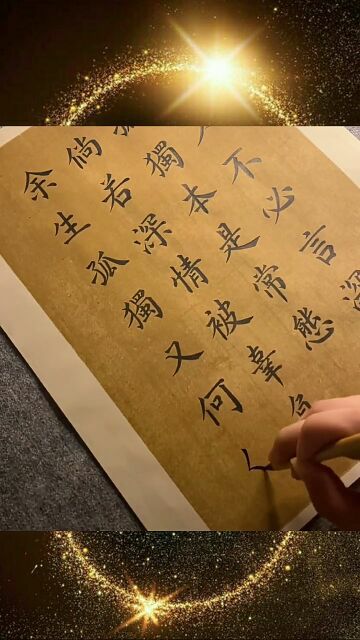 不必言深
獨本是常態
倘若深情被辜
余生孤獨又何